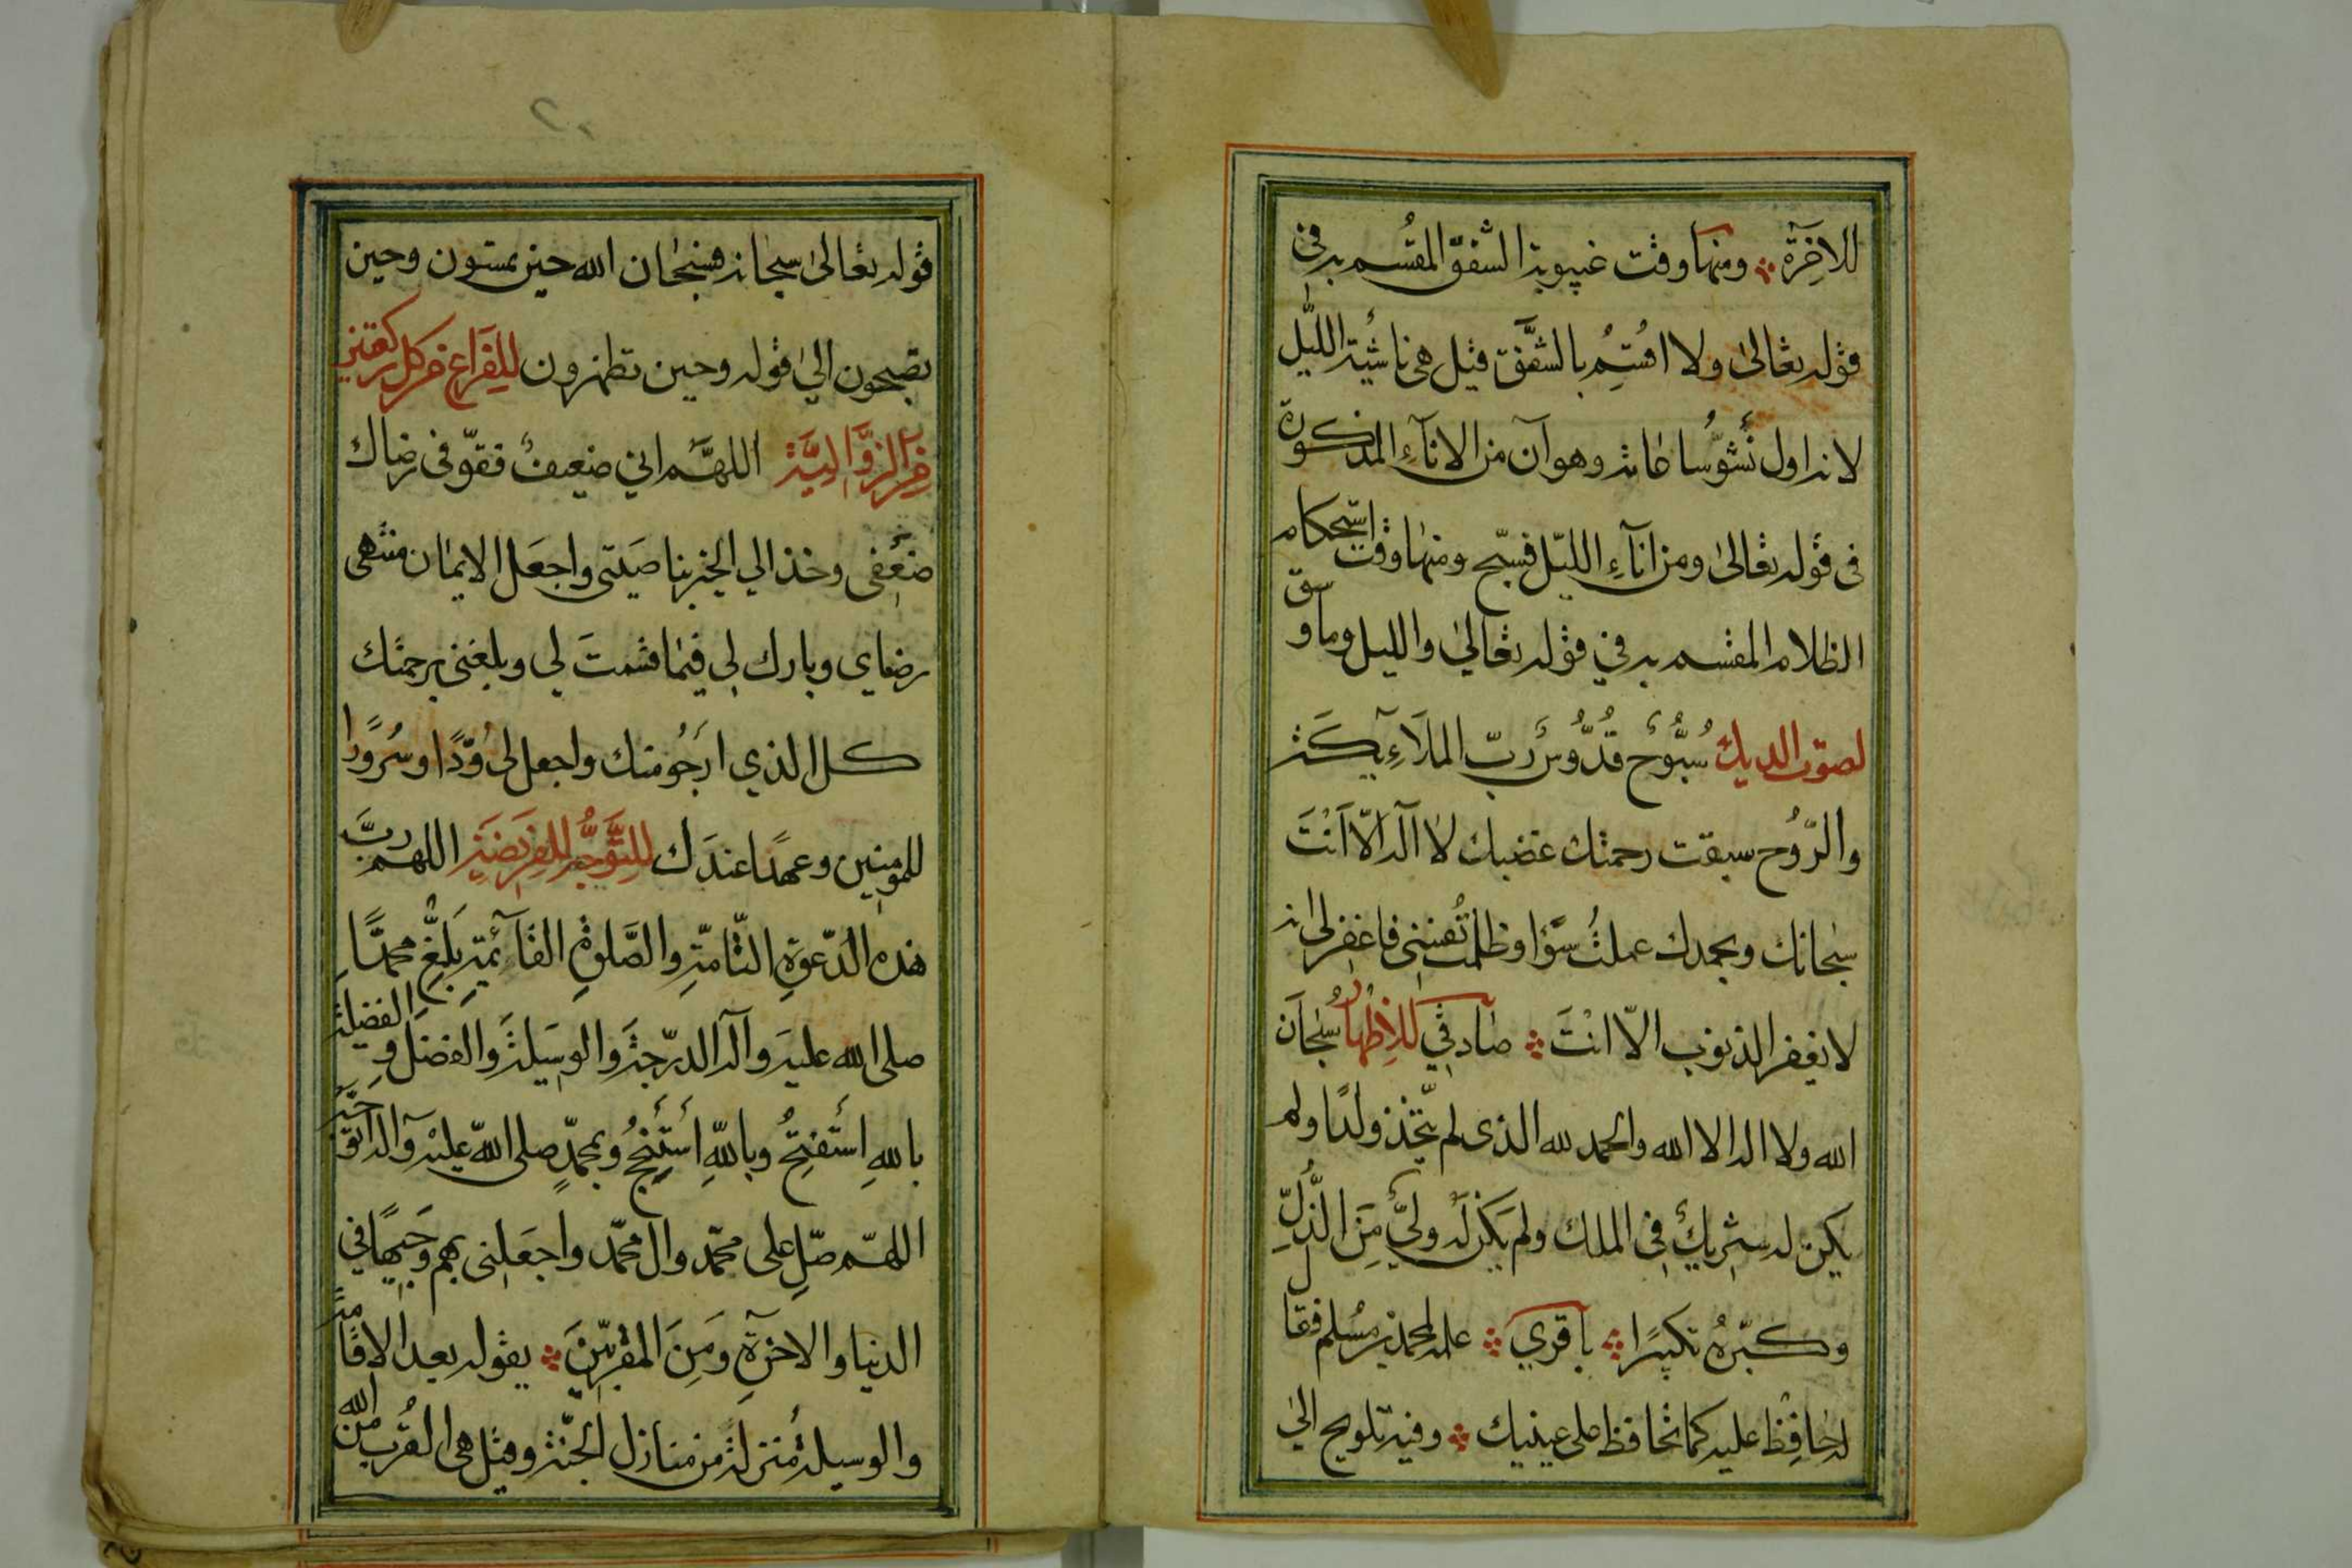 للاخرة ومنها وقت غيبوبة الشفق المقسم به في
قوله تعالى ولا اقسم بالشفق قيل هي ناشئة الليل
لانه اول نشو ساعاته وهو آن من الاناء المذكورة
في قوله تعالى ومن اناء الليل فسبح ومنها وقت استحكام
الظلام المقسم به في قوله تعالى والليل وما وسق
لصوت الديك سُبُّوحٌ قُدُّوسٌ رب الملائكة
والرُّوح سبقت رحمتك غضبك لا اله الا اَنْتَ
سبحانك وبحمدك عملتُ سوءًا وظلمت نفسي فاغفر لي انه
لا يغفر الذنوب الا انْتَ صادقي للاِظهار سبحان
الله ولا اله الا الله والحمد لله الذى لم يتّخذ ولدًا ولم
يكن له شريك في الملك ولم يكن له وليٌّ مِنَ الذُّلِّ
وكبّرهُ تكبيرًا باقري علمه لمحمد بن مُسلم فقال
له حافِظْ عليه كما تحافظ على عينيك وفيه تلويح الى
قوله تعالى سبحانه فسبحان الله حين تمسون وحين
تصبحون الي قوله وحين تظهرون للفراغ من كل ركعتين
من الزوالية اللهم اني ضعيفٌ فقوّ في رضاك
ضعفى وخذ الي الخير بناصيتى واجعل الايمان منتهى
رضاي وبارك لي فيما قسمتَ لي وبلغنى برحمتك
كل الذي ارجُو منك واجعل لى وُدًّا وسُرورًا
للمومنين وعهدًا عندك للتَّوجُّه للفريضة اللهم ربّ
هذه الدّعوةِ التّامّةِ والصَّلوةِ القآئمةِ بلّغ محمدًا
صلى الله عليه وآله الدّرجة والوسيلة والفضل و الفضيلة
بالله اَستفتِحُ وبالله اَستنجِحُ وبمحمدٍ صلى الله عليه وآله اتوجّه
اللهم صلّ على محمّد وال محمّد واجعلنى بهم وَجيهًا في
الدنيا والاخرةِ ومِنَ المقرّبينَ يقوله بعد الاقامة
والوسيلة مُنزلة من منازل الجنّة وقيل هى القُرب من الله